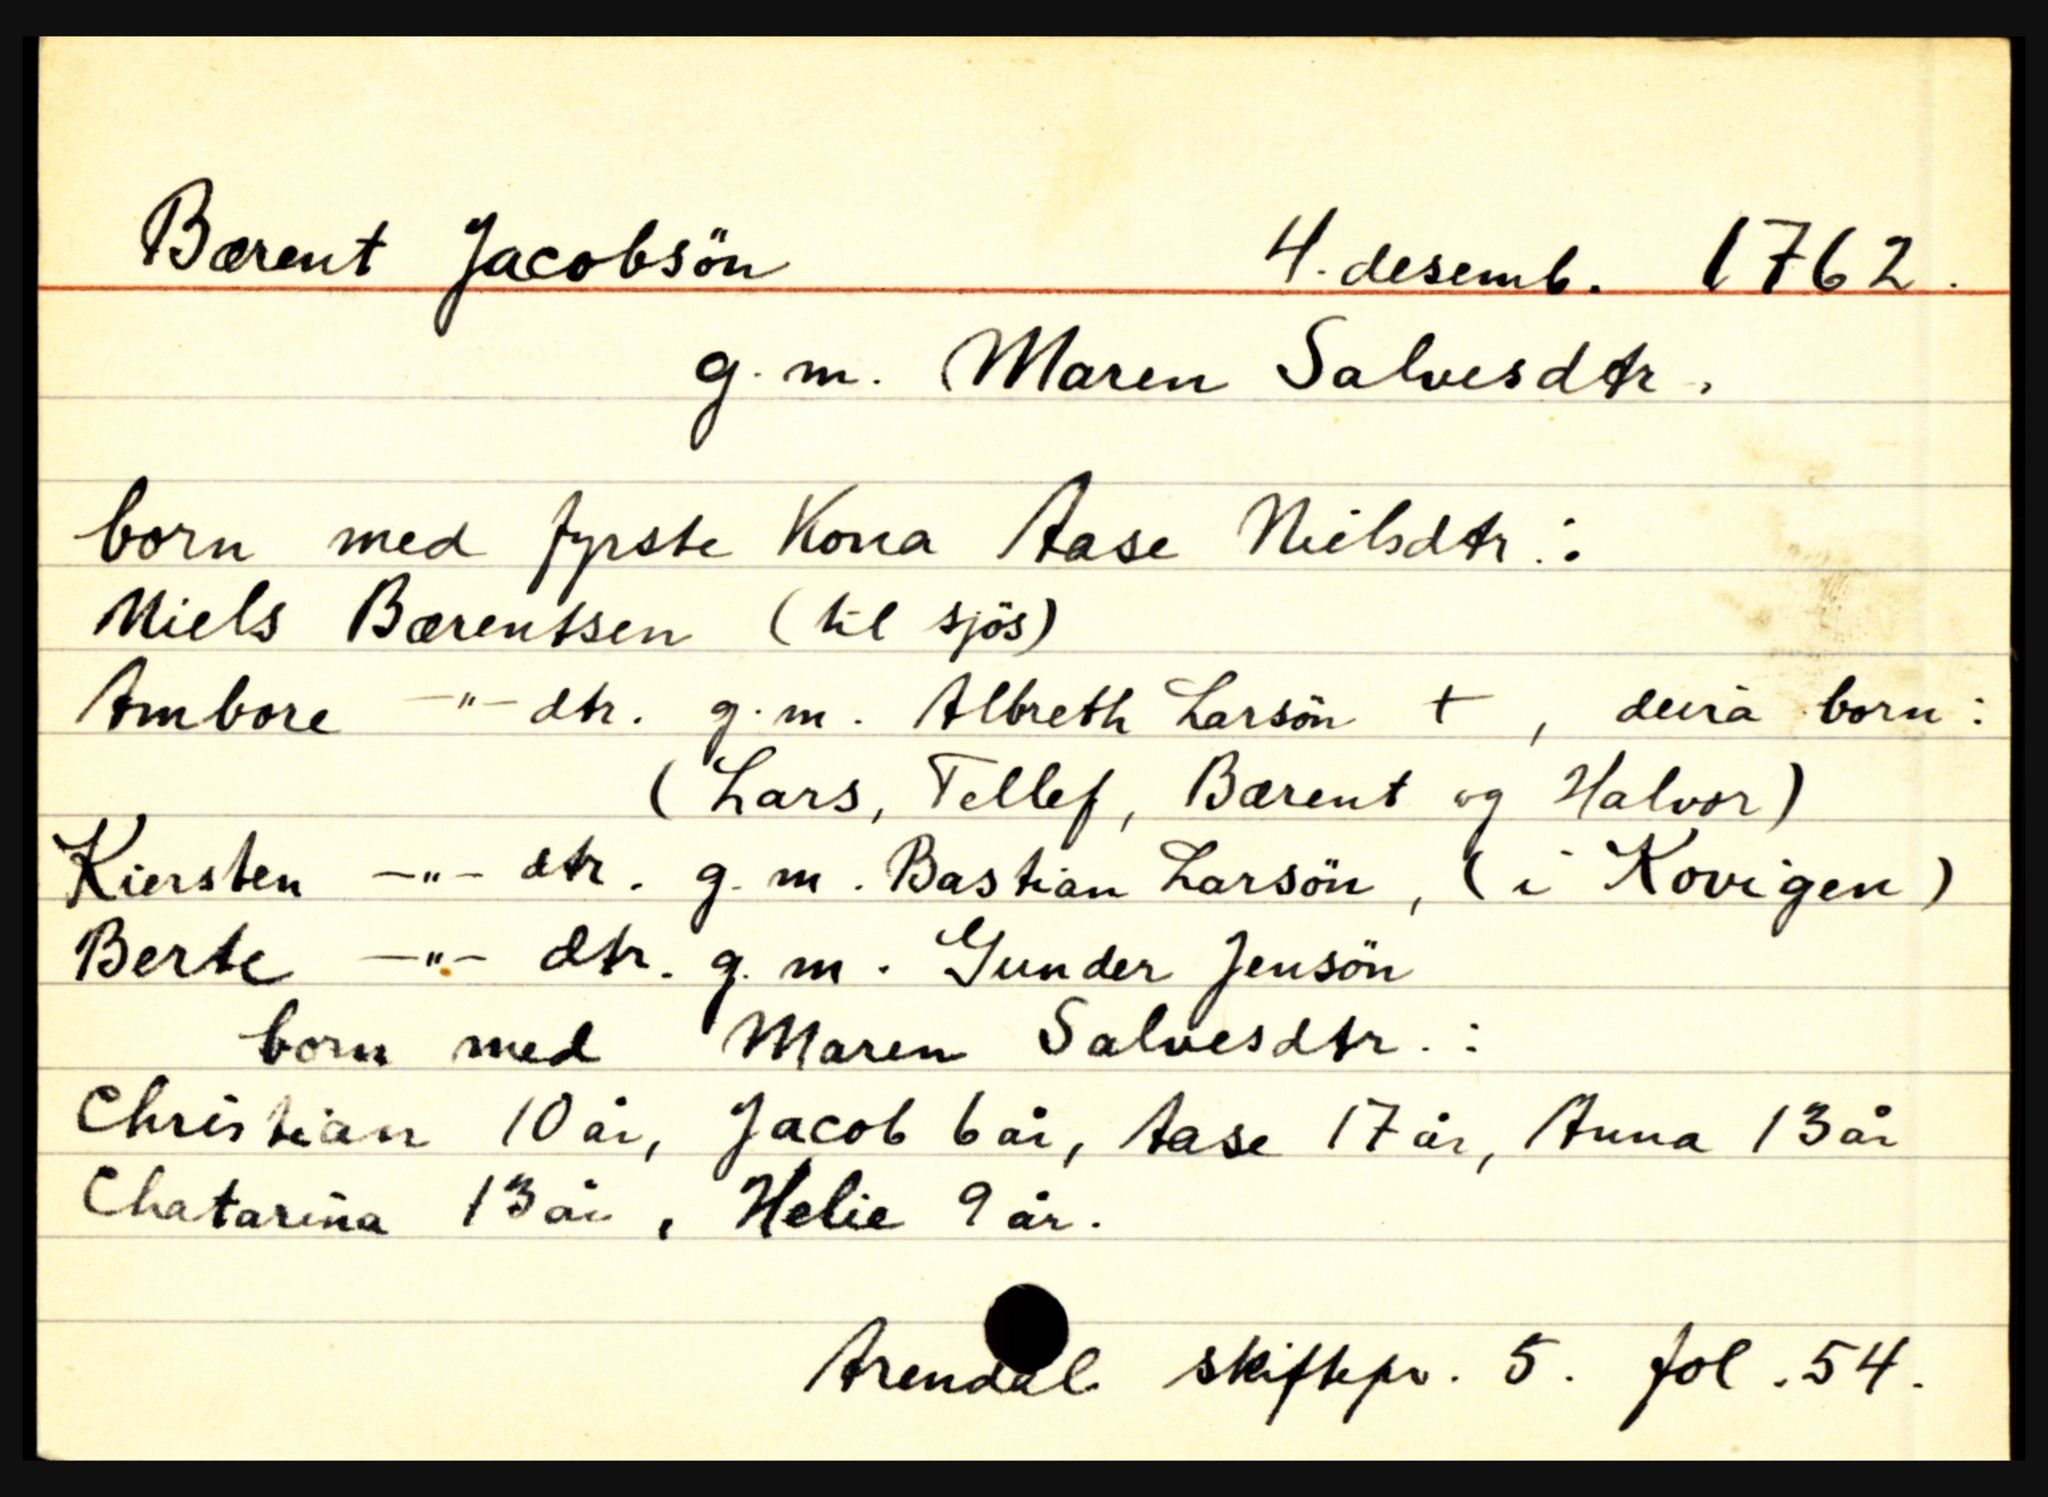 Bærent Jacobsön 4. desemb. 1762.
g. m. Maren Salvesdtr.
born med fyrste Kona Aase Nielsdtr.:
Niels Bærentsen (til sjös)
Ambore -"- dtr. g. m. Albreth Larsön +, deira born:
(Lars, Tellef, Bærent og Halvor)
Kiersten -"- dtr. g. m. Bastian Larsön, (i Kovigen)
Berte -"- dtr. g. m. Gunder Jensön
born med Maren Salvesdtr.:
Christian 10 år, Jacob 6 år, Aase 17 år, Anna 13 år
Chatarina 13 år, Helie 9 år.
Arendal skiftepr. 5. fol. 54.